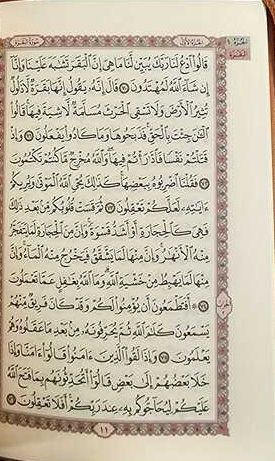 الجزء الأول
سورة البقرة
قالوا ادع لنا ربك يبين لنا ما هي إن البقر تشابه علينا وإنا
إن شاء الله لمهتدون ٧٠ قال إنه يقول إنها بقرة لا ذلول
تثير الأرض ولا تسقي الحرث مسلمة لا شية فيها قالوا
الآن جئت بالحق فذبحوها وما كادوا يفعلون ٧١ وإذ
قتلتم نفسا فادارأتم فيها والله مخرج ما كنتم تكتمون
٧٢ فقلنا اضربوه ببعضها كذلك يحي الله الموتى ويريكم
آياته لعلكم تعقلون ٧٣ ثم قست قلوبكم من بعد ذلك
فهي كالحجارة أو أشد قسوة وإن من الحجارة لما يتفجر
منه الأنهار وإن منها لما يشقق فيخرج منه الماء وإن
منها لما يهبط من خشية الله وما الله بغافل عما تعملون
٧٤ أفتطمعون أن يؤمنوا لكم وقد كان فريق منهم
يسمعون كلام الله ثم يحرفونه من بعد ما عقلوه وهم
يعلمون ٧٥ وإذا لقوا الذين آمنوا قالوا آمنا وإذا
خلا بعضهم إلى بعض قالوا أتحدثونهم بما فتح الله
عليكم ليحاجوكم به عند ربكم أفلا تعقلون ٧٦
١١